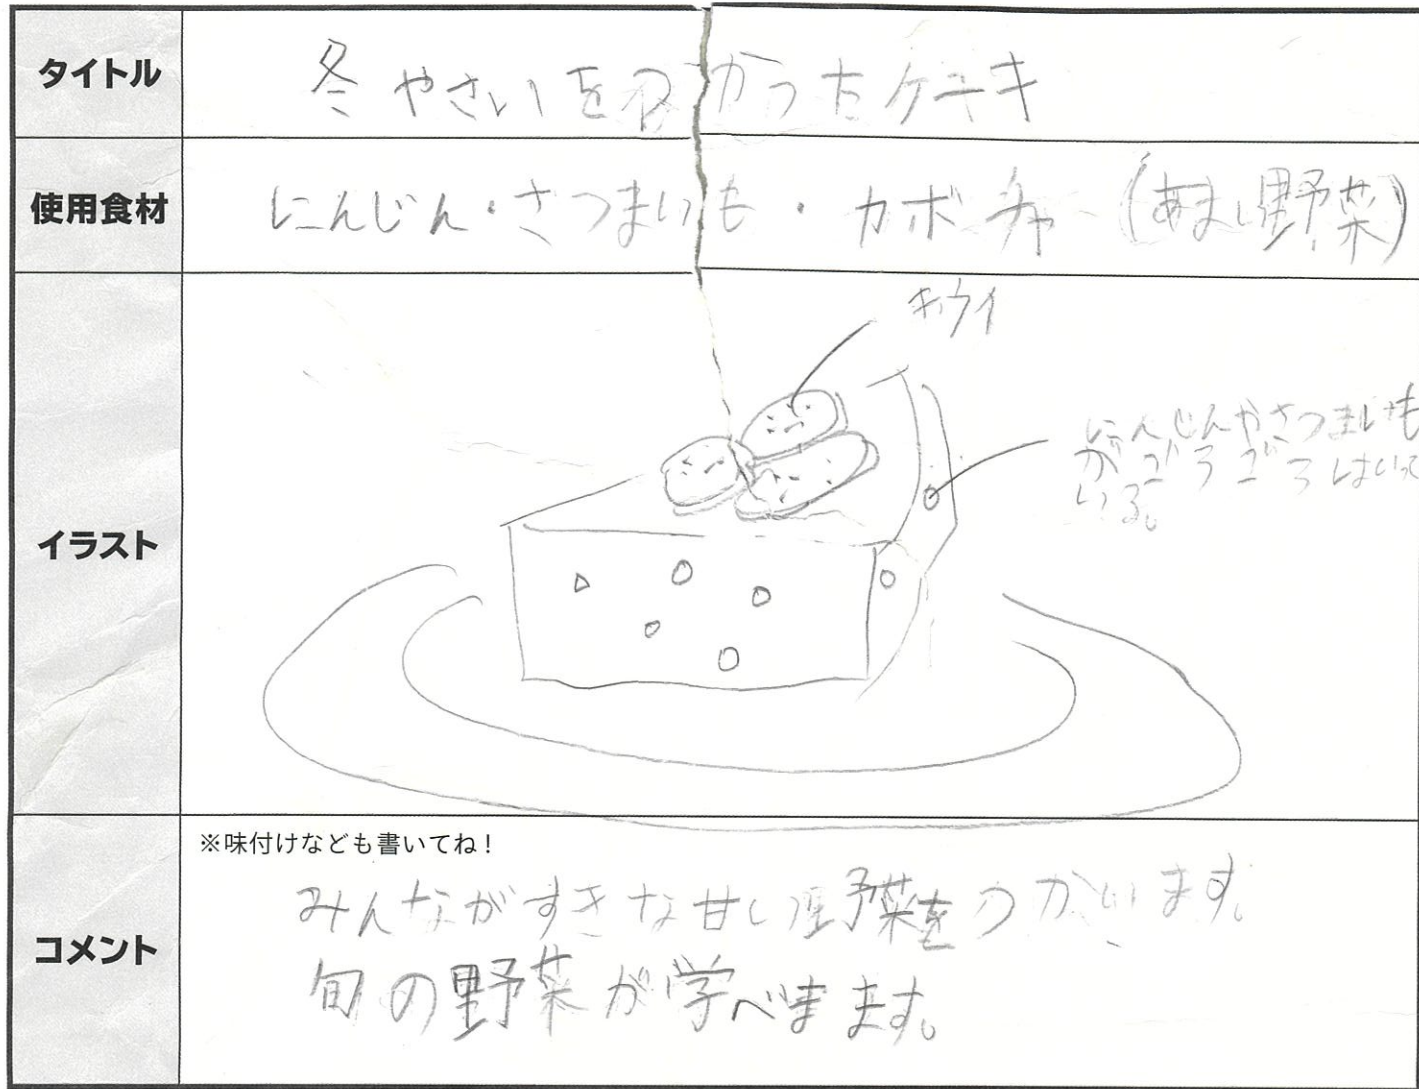 タイトル
冬やさいをつかったケーキ
使用食材
にんじん・さつまいも・カボチャ(あまい野菜)
イラスト
キウイ
にんじんやさつまいも
がごろごろはいって
いる。
コメント
※味付けなども書いてね！
みんながすきな甘い野菜をつかいます。
旬の野菜が学べまます。